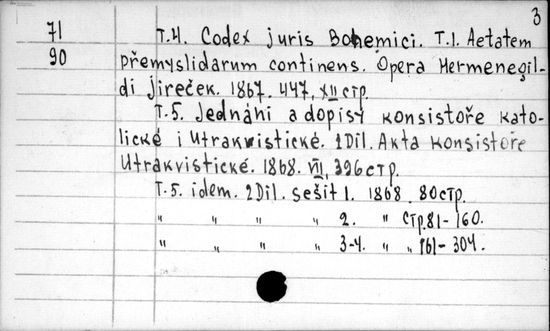 3
71 T.4. Codex juris Bohemici. T.1. Aetatem
90 Přemyslidarum continens. Opera Hermenegil-
di Jireček. 1867. 447, XII стр.
T.5. Jednáni a dopisy konsistoře kato-
lické i utrakvistické. 1 Dil. Akta konsistoře
utrakvistické. 1868. VII, 396 стр.
T.5. idem. 2 Dil. sešit 1. 1868. 80 стр.
" " " " 2. " стр. 81-160.
" " " " 3-4. " " 161-304.